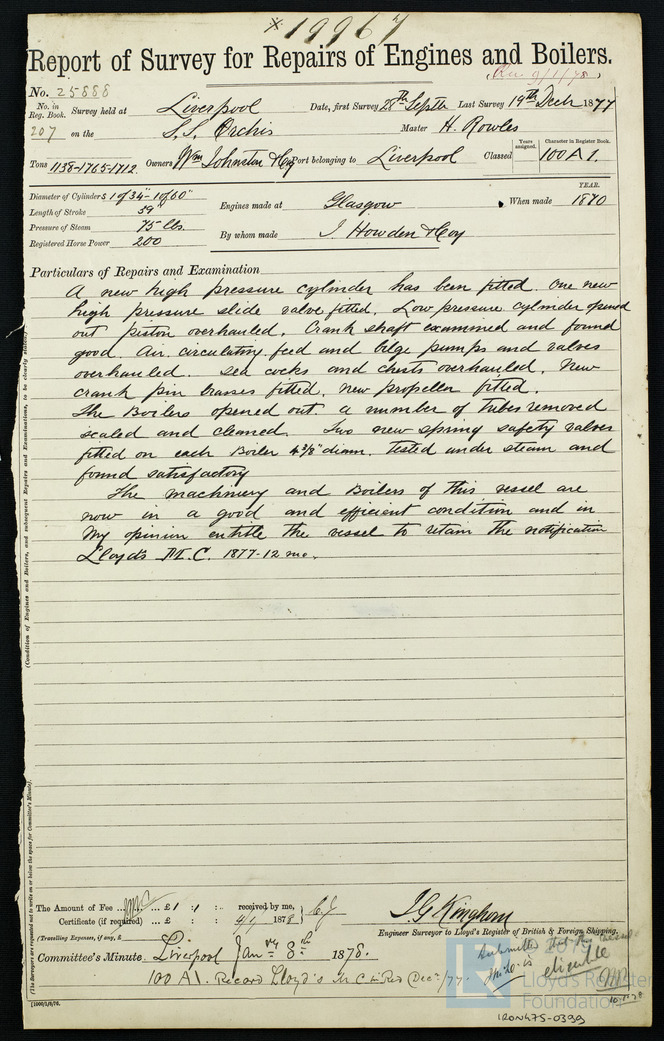 * 19967
Report of Survey for Repairs of Engines and Boilers.
Rec 9/1/78
No. 25888
No. in Reg. Book. Survey held at Liverpool Date, first Survey 28th Septr Last Survey 19th Decr 1877
207 on the S.S. Orchis Master H. Rowles
Tons 1138-1765-1712 Owners Wm Johnston & Coy Port belonging to Liverpool Classed Years assigned. Character in Register Book. 100 A 1.
Diameter of Cylinders 1 of 34" - 1 of 60"
Length of Stroke 39"
Pressure of Steam 75 lbs.
Registered Horse Power 200
Engines made at Glasgow When made YEAR. 1870
By whom made J. Howden & Coy
Particulars of Repairs and Examination
A new high pressure cylinder has been fitted. One new
high pressure slide valve fitted. Low pressure cylinder opened
out piston overhauled. Crank shaft examined and found
good. Air, circulating feed and bilge pumps and valves
overhauled. Sea cocks and chests overhauled. New
crank pin brasses fitted. New propeller fitted.
The Boilers opened out. a number of tubes removed
scaled and cleaned. Two new spring safety valves
fitted on each Boiler 4 3/8" diam. tested under steam and
found satisfactory
The machinery and Boilers of this vessel are
now in a good and efficient condition and in
my opinion entitle the vessel to retain the notification
Lloyd's M.C. 1877-12 mo.
(Condition of Engines and Boilers, and subsequent Repairs and Examinations, to be clearly stated)
(The Surveyors are requested not to write on or below the space for Committee's Minute).
The Amount of Fee ... £1 : : received by me,
Certificate (if required) ... £ : : 4/1/ 1878
(Travelling Expenses, if any, £
J G Kinghorn
Engineer Surveyor to Lloyd's Register of British & Foreign Shipping.
Committee's Minute Liverpool Jany 8th 1878.
100 A1. Record Lloyd's M.C. in Red Dec/77.
Submitted that this vessel
is eligible
10.1.78
[1000/1/6/76.
© 2019
LR
Lloyd's Register
Foundation
IRON475-0399